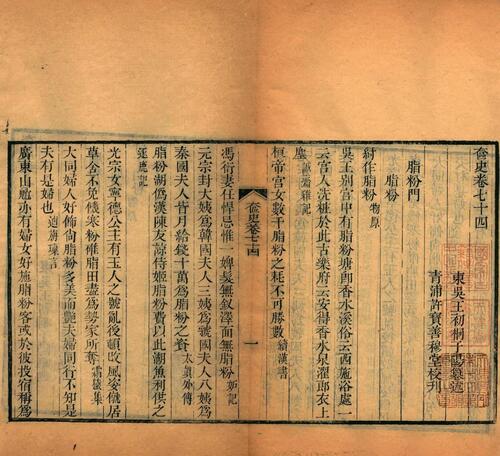 奩史卷七十四
東吳王初桐于陽纂述
青浦許寶善穆堂校刊
脂粉門
脂粉
紂作脂粉 物原
吳王別宮中有脂粉塘即香水溪俗云西施浴處一
云宮人洗粧於此古樂府云安得香水泉濯郎衣上
塵
桓帝宮女數千脂粉之耗不可勝數 續漢書
奩史卷七十四
一
馮衍妻任悍忌惟一婢髮無釵澤面無脂粉 妬記
元宗封大姨為韓國夫人三姨為虢國夫人八姨為
秦國夫人皆月給錢十萬為脂粉之資 太真外傳
脂粉湖偽漢陳友諒侍姬脂粉費以此湖魚利供之
光宗女寧德公主有玉人之號亂後頓改風姿僦居
草舍不免儀寒粉稚脂田盡為勢家所奪
大同婦人好飾尙脂粉多美而艷夫婦同行不知是
夫有是婦也
廣東山魈亦有婦女好施脂粉客或於彼投宿稱為